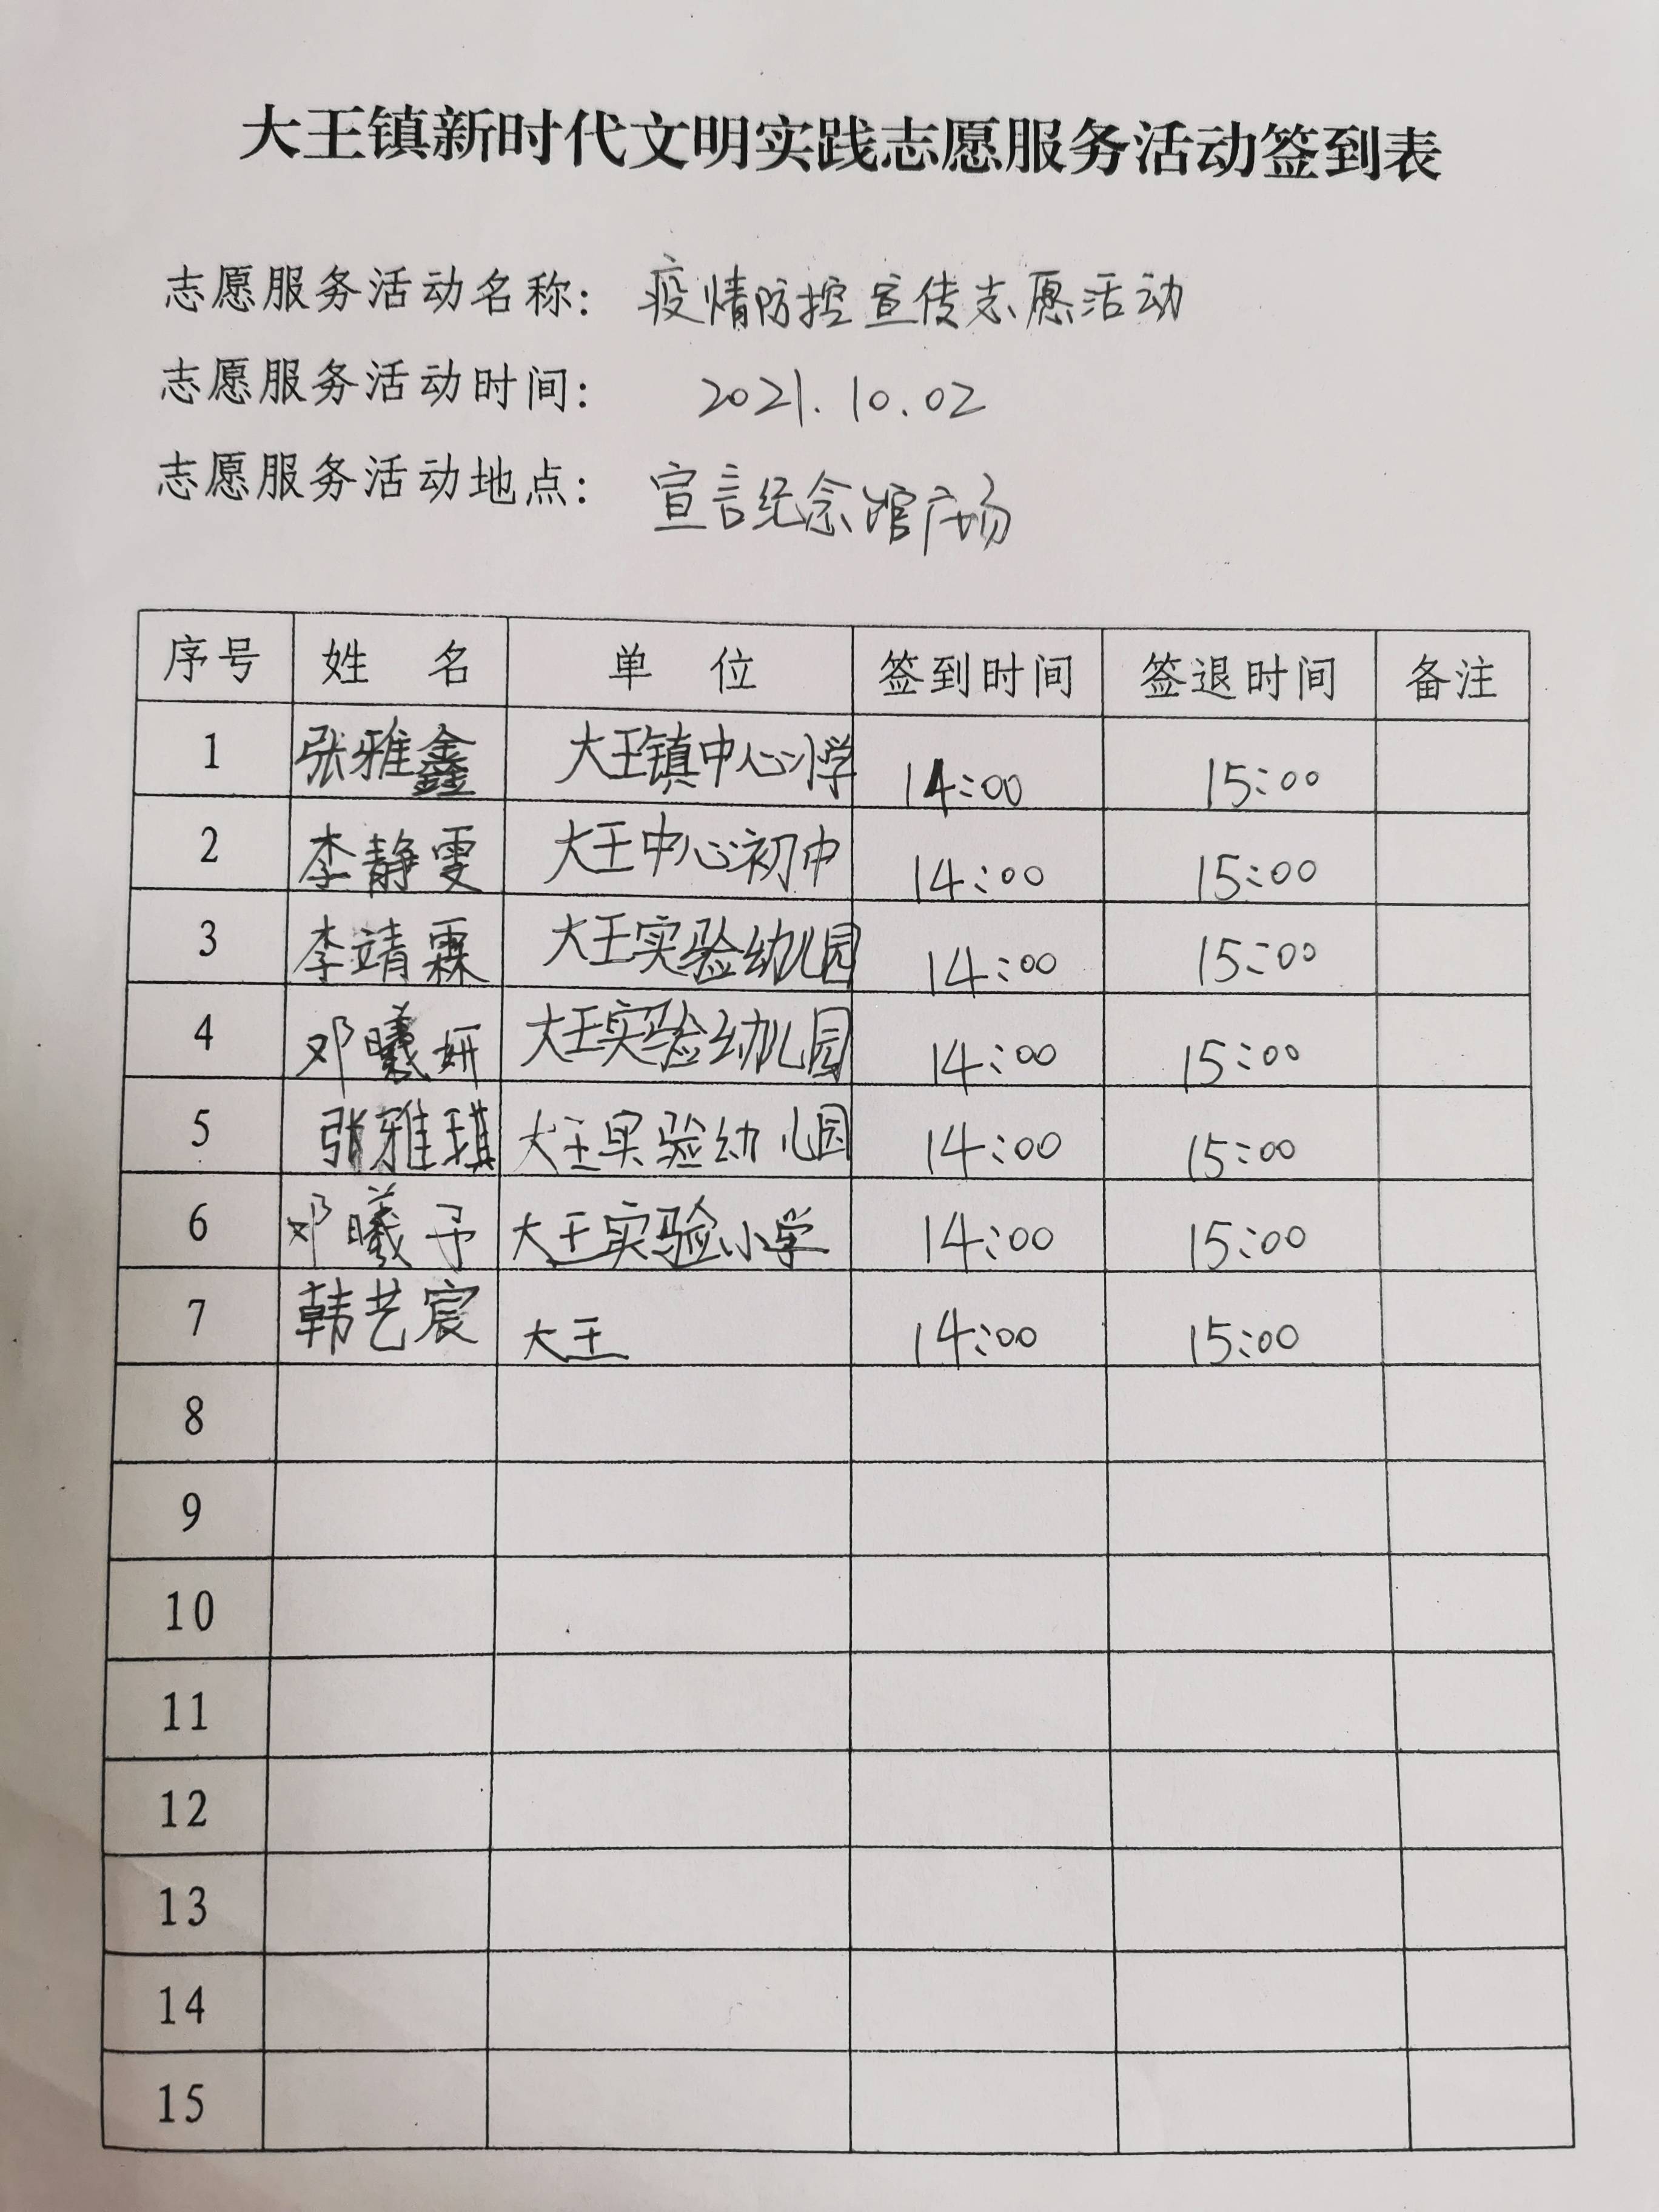 大王镇新时代文明实践志愿服务活动签到表
志愿服务活动名称: 疫情防控宣传志愿活动
志愿服务活动时间: 2021.10.02
志愿服务活动地点: 宣言纪念馆广场
序号 姓 名 单 位 签到时间 签退时间 备注
1 张雅鑫 大王镇中心小学 14:00 15:00
2 李静雯 大王中心初中 14:00 15:00
3 李靖霖 大王实验幼儿园 14:00 15:00
4 邓曦妍 大王实验幼儿园 14:00 15:00
5 张雅琪 大王实验幼儿园 14:00 15:00
6 邓曦予 大王实验小学 14:00 15:00
7 韩艺宸 大王 14:00 15:00
8
9
10
11
12
13
14
15